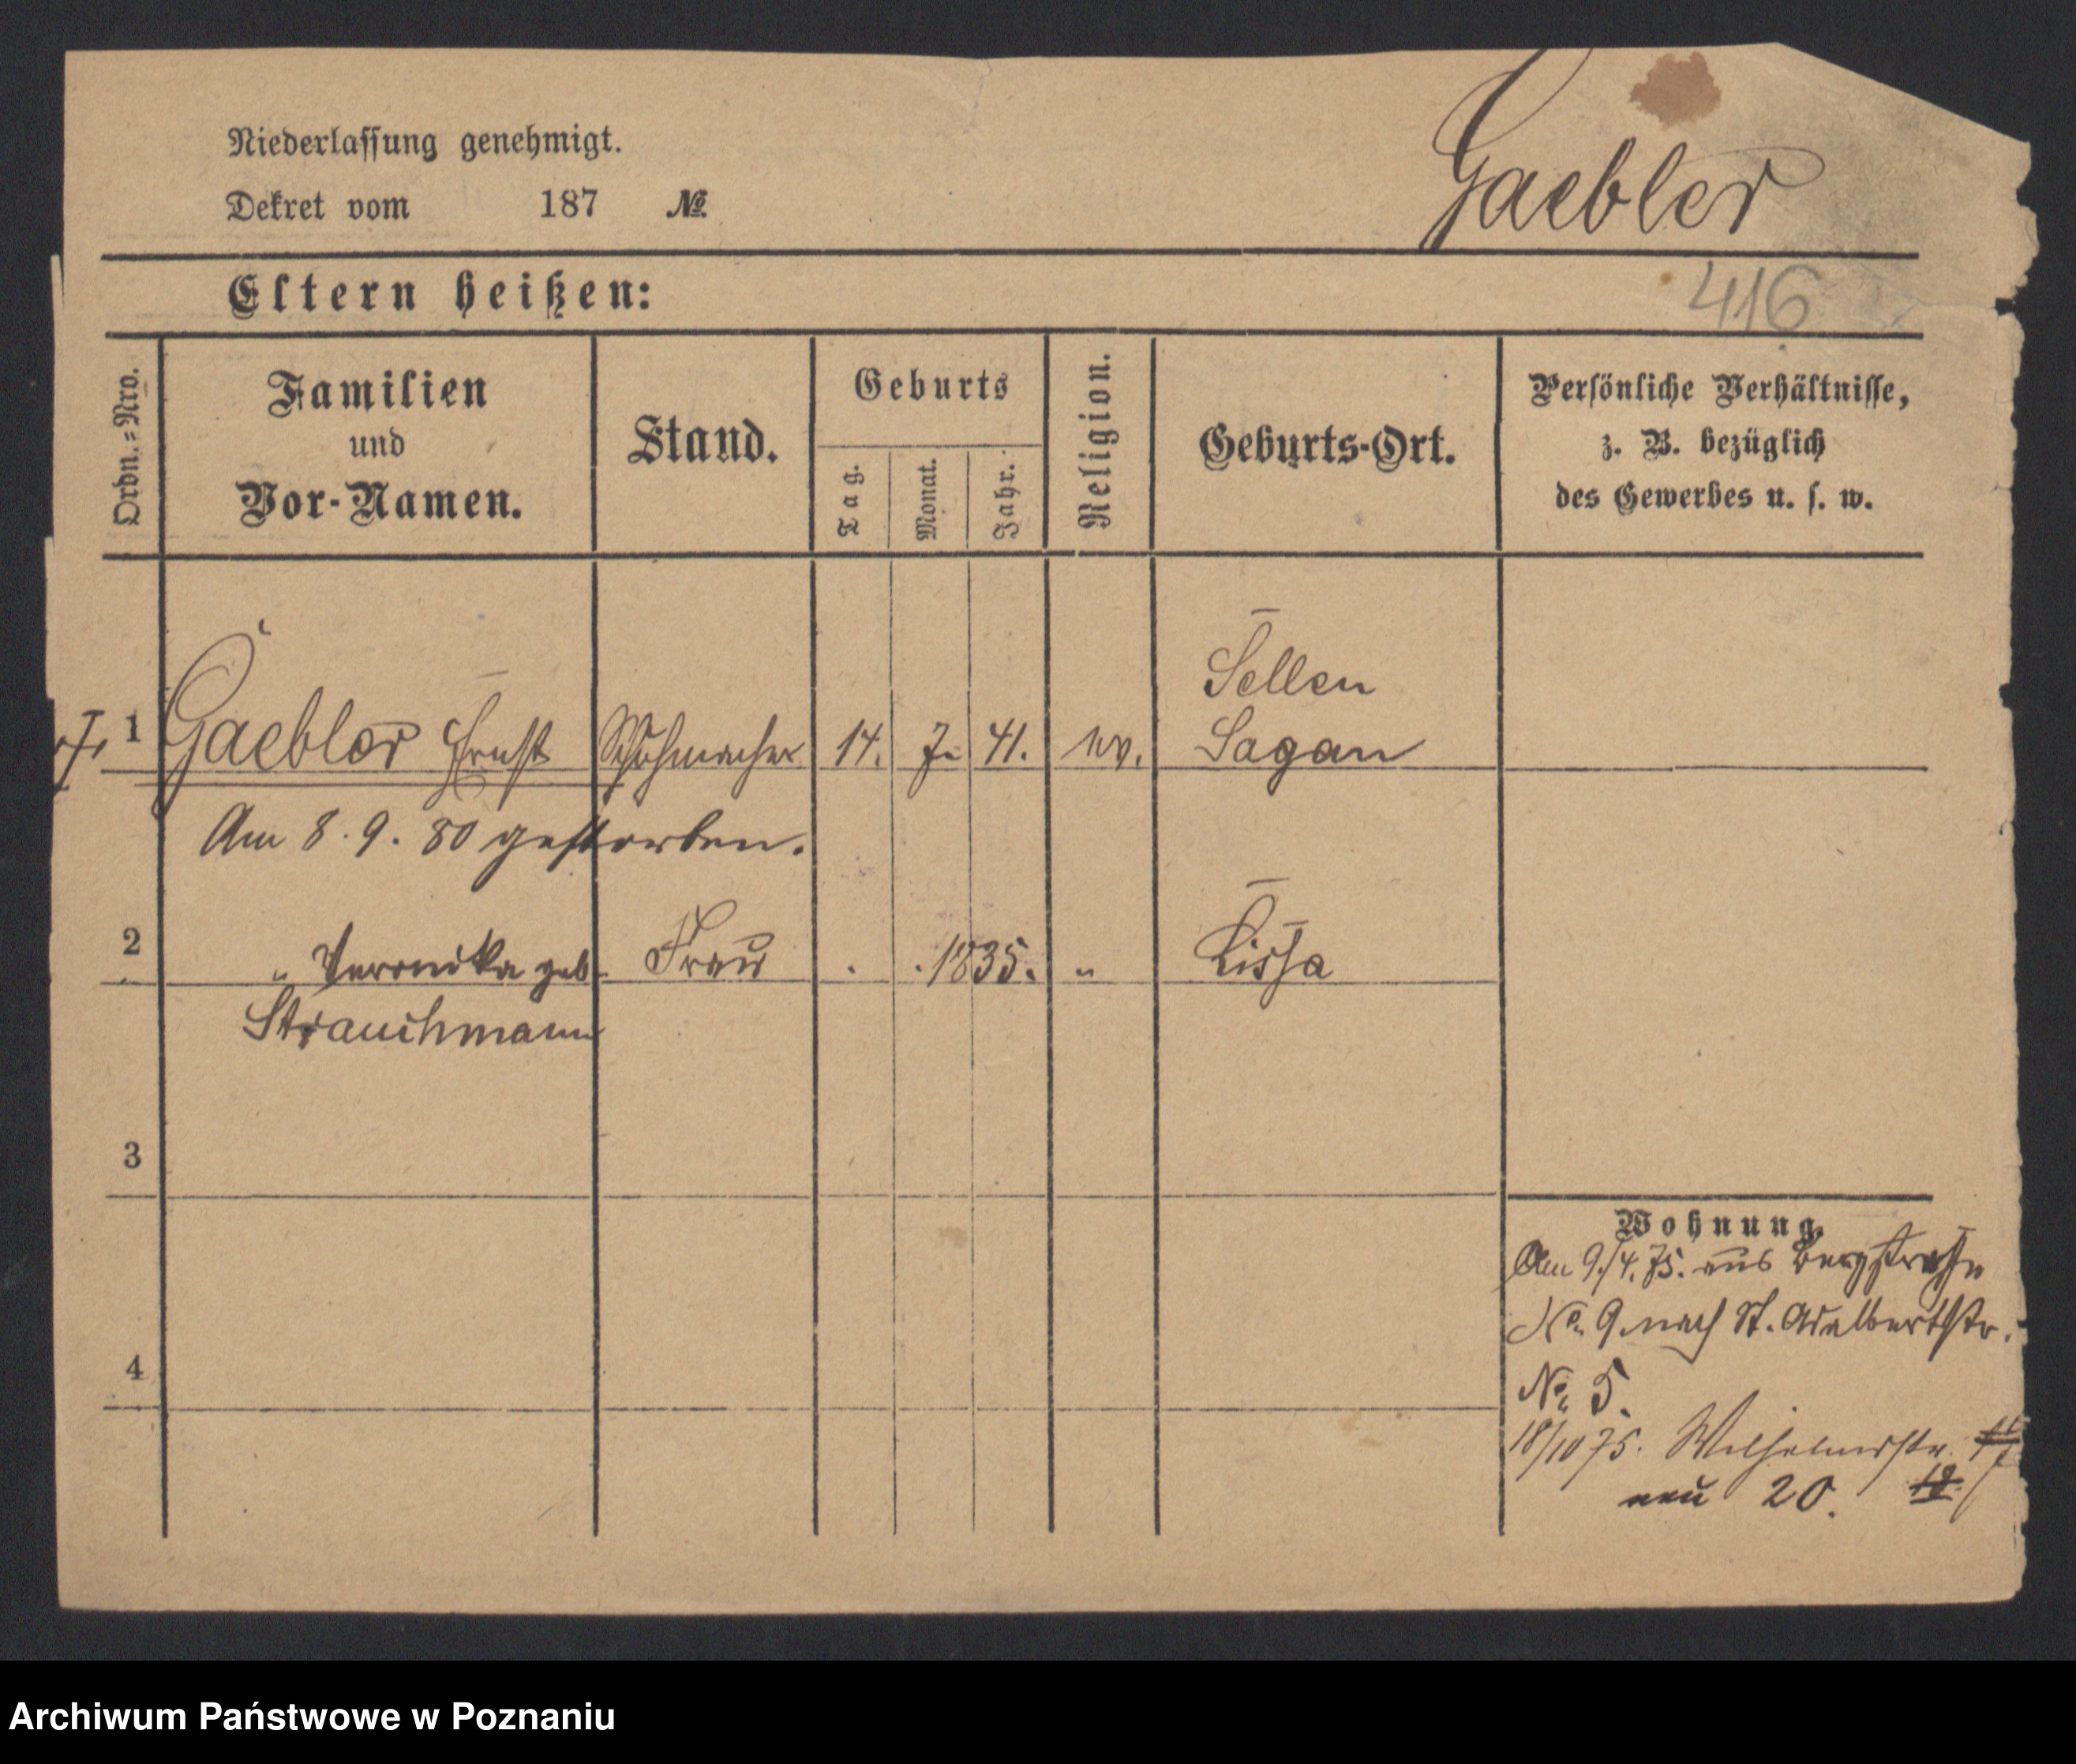 Gaebler
Niederlassung genehmigt.
Dekret vom 187 №
416
Eltern heißen:
Ordn.=Nro.
Familien
und
Vor-Namen.
Stand.
Geburts
Tag.
Monat.
Jahr.
Religion.
Geburts-Ort.
Persönliche Verhältnisse,
z. B. bezüglich
des Gewerbes u. s. w.
Sellen
1 Gaebler Ernst Schuhmacher 14. 7. 41. ev. Sagan
Am 8. 9. 80 gestorben.
2 " Veronika geb. Frau . . 1835. " Lissa
Strauchmann
3
4
Wohnung.
Am 9./4. 75. aus Bergstraße
No. 9 nach St. Adalbertstr.
No. 5.
18/10 75. Wilhelmstr.
neu 20. 18
Archiwum Państwowe w Poznaniu